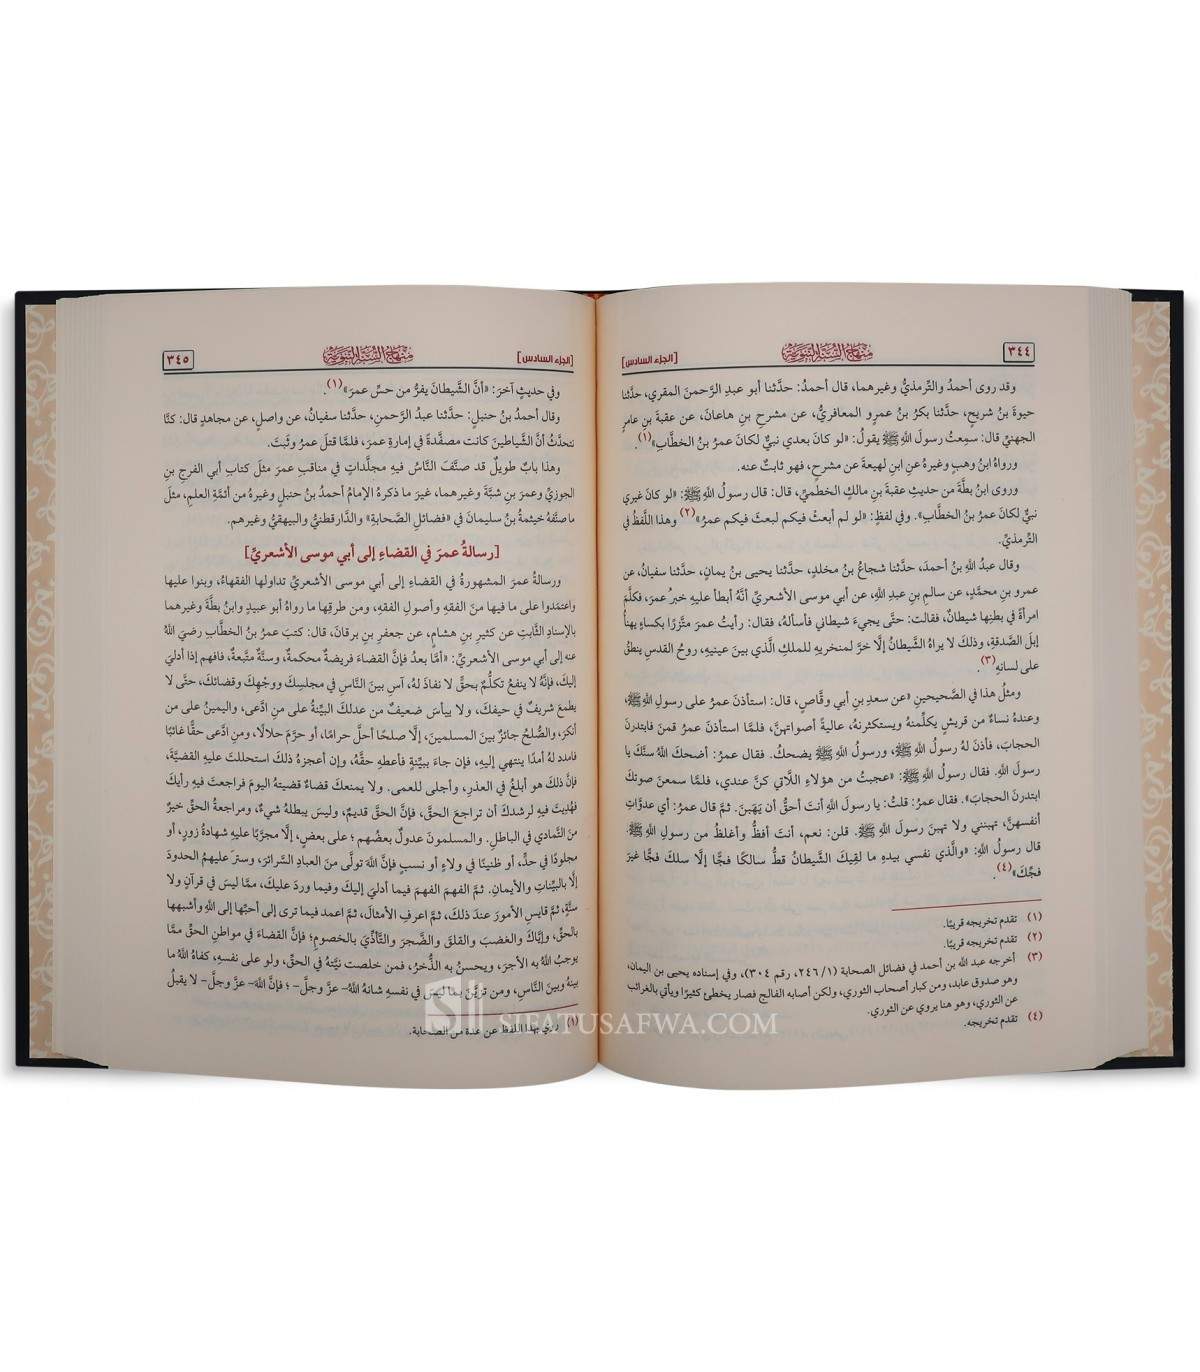 ٣٤٤ منهاج السنة النبوية [الجزء السادس]
وقد روى أحمدُ والتِّرمذيُّ وغيرهما، قال أحمدُ: حدَّثنا أبو عبدِ الرَّحمنَ المقري، حدَّثنا
حيوةَ بنُ شريحٍ، حدَّثنا بكرُ بنُ عمرٍو المعافريُّ، عن مشرحِ بنِ هاعانَ، عن عقبةَ بنِ عامرٍ
الجهنيِّ قال: سمِعتُ رسولَ اللهِ ﷺ يقولُ: «لو كانَ بعدي نبيٌّ لكانَ عمرُ بنُ الخطَّابِ»(١).
ورواهُ ابنُ وهبٍ وغيرهُ عنِ ابنِ لهيعةَ عن مشرحٍ، فهو ثابتٌ عنه.
وروى ابنُ بطَّةَ من حديثِ عقبةَ بنِ مالكٍ الخطميِّ، قال: قال رسولُ اللهِ ﷺ: «لو كانَ غيري
نبيٌّ لكانَ عمرُ بنُ الخطَّابِ». وفي لفظٍ: «لو لم أبعثْ فيكم لبعثَ فيكم عمرُ»(٢) وهذا اللَّفظُ في
التِّرمذيِّ.
وقال عبدُ اللهِ بنُ أحمدَ، حدَّثنا شجاعُ بنُ مخلدٍ، حدَّثنا يحيى بنُ يمانٍ، حدَّثنا سفيانُ، عن
عمرو بنِ محمَّدٍ، عن سالمِ بنِ عبدِ اللهِ، عن أبي موسى الأشعريِّ أنَّهُ أبطأَ عليهِ خبرُ عمرَ، فكلَّمَ
امرأةً في بطنِها شيطانٌ، فقالت: حتَّى يجيءَ شيطاني فأسألهُ، فقال: رأيتُ عمرَ متَّزرًا بكساءٍ يهنأُ
إبلَ الصَّدقةِ، وذلكَ لا يراهُ الشَّيطانُ إلَّا خرَّ لمنخريهِ للملكِ الَّذي بينَ عينيهِ، روحُ القدسِ ينطقُ
على لسانهِ(٣).
ومثلُ هذا في الصَّحيحينِ «عن سعدِ بنِ أبي وقَّاصٍ، قال: استأذنَ عمرُ على رسولِ اللهِ ﷺ،
وعندهُ نساءٌ من قريشٍ يكلِّمنهُ ويستكثرنهُ، عاليةً أصواتهنَّ، فلمَّا استأذنَ عمرُ قمنَ فابتدرنَ
الحجابَ، فأذنَ لهُ رسولُ اللهِ ﷺ، ورسولُ اللهِ ﷺ يضحكُ. فقال عمرُ: أضحكَ اللهُ سنَّكَ يا
رسولَ اللهِ. فقال رسولُ اللهِ ﷺ: «عجبتُ من هؤلاءِ اللَّاتي كنَّ عندي، فلمَّا سمعنَ صوتكَ
ابتدرنَ الحجابَ». فقال عمرُ: قلتُ: يا رسولَ اللهِ أنتَ أحقُّ أن يَهَبنَ. ثمَّ قال عمرُ: أي عدوَّاتِ
أنفسهنَّ، تهبنني ولا تهبنَ رسولَ اللهِ ﷺ. قلنَ: نعم، أنتَ أفظُّ وأغلظُ من رسولِ اللهِ ﷺ.
قال رسولُ اللهِ: «والَّذي نفسي بيدهِ ما لقيكَ الشَّيطانُ قطُّ سالكًا فجًّا إلَّا سلكَ فجًّا غيرَ
فجِّكَ»(٤).
(١) تقدم تخريجه قريبًا.
(٢) تقدم تخريجه قريبًا.
(٣) أخرجه عبد الله بن أحمد في فضائل الصحابة (١/ ٢٤٦، رقم ٣٠٤)، وفي إسناده يحيى بن اليمان،
وهو صدوق عابد، ومن كبار أصحاب الثوري، ولكن أصابه الفالج فصار يخطئ كثيرًا ويأتي بالغرائب
عن الثوري، وهو هنا يروي عن الثوري.
(٤) تقدم تخريجه.
[الجزء السادس] منهاج السنة النبوية ٣٤٥
وفي حديثٍ آخرَ: «أنَّ الشَّيطانَ يفرُّ من حسِّ عمرَ»(١).
وقال أحمدُ بنُ حنبلٍ: حدَّثنا عبدُ الرَّحمنِ، حدَّثنا سفيانُ، عن واصلٍ، عن مجاهدٍ قال: كنَّا
نتحدَّثُ أنَّ الشَّياطينَ كانت مصفَّدةً في إمارةِ عمرَ، فلمَّا قتلَ عمرُ وثبَت.
وهذا بابٌ طويلٌ قد صنَّفَ النَّاسُ فيهِ مجلَّداتٍ في مناقبِ عمرَ مثلَ كتابِ أبي الفرجِ بنِ
الجوزيِّ وعمرَ بنِ شبَّةَ وغيرهما، غيرَ ما ذكرهُ الإمامُ أحمدُ بنُ حنبلٍ وغيرهُ من أئمَّةِ العلمِ، مثلَ
ما صنَّفهُ خيثمةُ بنُ سليمانَ في «فضائلِ الصَّحابةِ» والدَّارقطنيُّ والبيهقيُّ وغيرهم.
[رسالةُ عمرَ في القضاءِ إلى أبي موسى الأشعريِّ]
ورسالةُ عمرَ المشهورةُ في القضاءِ إلى أبي موسى الأشعريِّ تداولها الفقهاءُ، وبنوا عليها
واعتمَدوا على ما فيها منَ الفقهِ وأصولِ الفقهِ، ومن طرقِها ما رواهُ أبو عبيدٍ وابنُ بطَّةَ وغيرهما
بالإسنادِ الثَّابتِ عن كثيرِ بنِ هشامٍ، عن جعفرِ بنِ برقانَ، قال: كتبَ عمرُ بنُ الخطَّابِ رضيَ اللهُ
عنه إلى أبي موسى الأشعريِّ: «أمَّا بعدُ فإنَّ القضاءَ فريضةٌ محكمةٌ، وسنَّةٌ متَّبعةٌ، فافهم إذا أدليَ
إليكَ، فإنَّهُ لا ينفعُ تكلُّمٌ بحقٍّ لا نفاذَ لهُ، آسِ بينَ النَّاسِ في مجلسِكَ ووجْهِكَ وقضائكَ، حتَّى لا
يطمعَ شريفٌ في حيفكَ، ولا ييأسَ ضعيفٌ من عدلكَ البيِّنةُ على منِ ادَّعى، واليمينُ على من
أنكرَ، والصُّلحُ جائزٌ بينَ المسلمينَ، إلَّا صلحًا أحلَّ حرامًا، أو حرَّمَ حلالًا، ومنِ ادَّعى حقًّا غائبًا
فامدد لهُ أمدًا ينتهي إليهِ، فإن جاءَ ببيِّنةٍ فأعطهِ حقَّهُ، وإن أعجزهُ ذلكَ استحللتَ عليهِ القضيَّةَ،
فإنَّ ذلكَ هو أبلغُ في العذرِ، وأجلى للعمى. ولا يمنعكَ قضاءٌ قضيتهُ اليومَ فراجعتَ فيهِ رأيكَ
فهُديتَ فيهِ لرشدكَ أن تراجعَ الحقَّ، فإنَّ الحقَّ قديمٌ، وليسَ يبطلهُ شيءٌ، ومراجعةُ الحقِّ خيرٌ
منَ التَّمادي في الباطلِ. والمسلمونَ عدولٌ بعضُهم؛ على بعضٍ، إلَّا مجرَّبًا عليهِ شهادةُ زورٍ، أو
مجلودًا في حدٍّ، أو ظنينًا في ولاءٍ أو نسبٍ فإنَّ اللهَ تولَّى منَ العبادِ السَّرائرَ، وسترَ عليهمُ الحدودَ
إلَّا بالبيِّناتِ والأيمانِ. ثمَّ الفهمَ الفهمَ فيما أدليَ إليكَ وفيما وردَ عليكَ، ممَّا ليسَ في قرآنٍ ولا
سنَّةٍ، ثمَّ قايسِ الأمورَ عندَ ذلكَ، ثمَّ اعرفِ الأمثالَ، ثمَّ اعمد فيما ترى إلى أحبِّها إلى اللهِ وأشبهِها
بالحقِّ، وإيَّاكَ والغضبَ والقلقَ والضَّجرَ والتَّأذِّيَ بالخصومِ؛ فإنَّ القضاءَ في مواطنِ الحقِّ ممَّا
يوجبُ اللهُ به الأجرَ، ويحسنُ به الذُّخرُ، فمن خلصت نيَّتهُ في الحقِّ، ولو على نفسهِ، كفاهُ اللهُ ما
بينهُ وبينَ النَّاسِ، ومن تزيَّنَ بما ليسَ في نفسهِ شانهُ اللهُ -عزَّ وجلَّ-؛ فإنَّ اللهَ -عزَّ وجلَّ- لا يقبلُ
(١) روي بهذا اللفظ عن عدة من الصحابة.
SIFATUSAFWA.COM